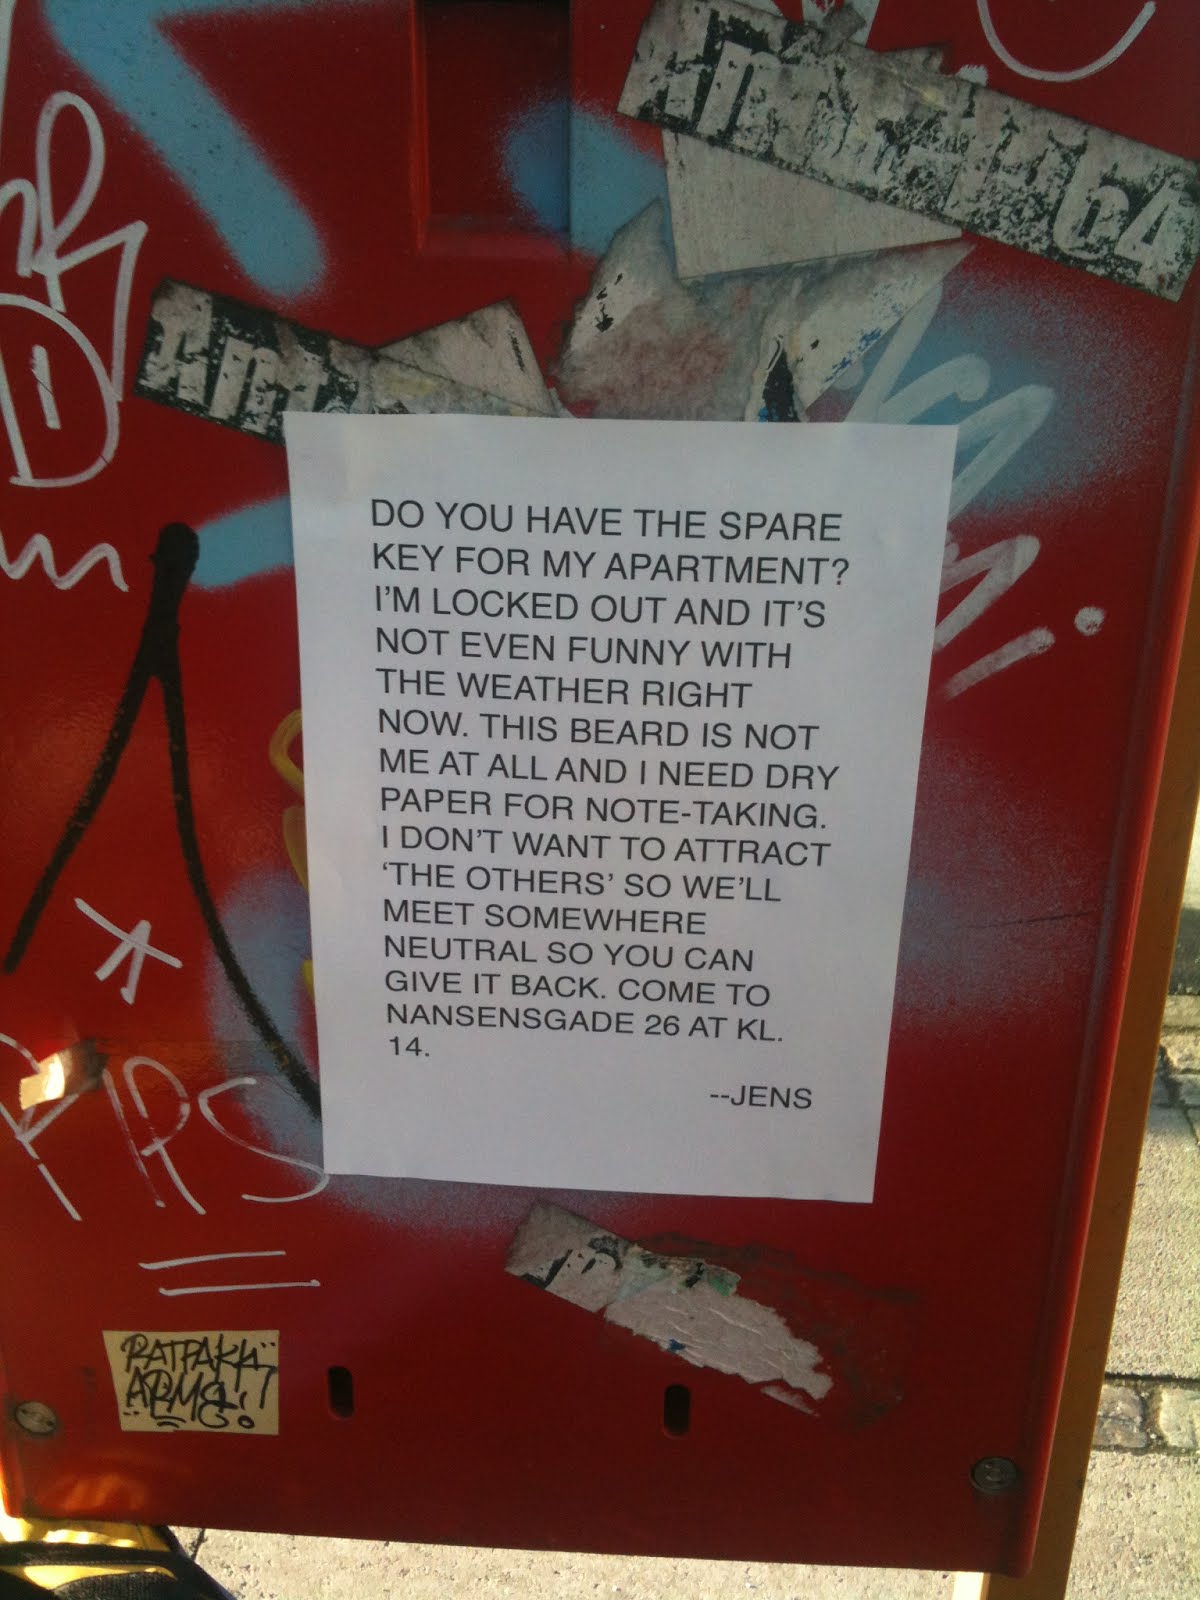 DO YOU HAVE THE SPARE
KEY FOR MY APARTMENT?
I'M LOCKED OUT AND IT'S
NOT EVEN FUNNY WITH
THE WEATHER RIGHT
NOW. THIS BEARD IS NOT
ME AT ALL AND I NEED DRY
PAPER FOR NOTE-TAKING.
I DON'T WANT TO ATTRACT
'THE OTHERS' SO WE'LL
MEET SOMEWHERE
NEUTRAL SO YOU CAN
GIVE IT BACK. COME TO
NANSENSGADE 26 AT KL.
14.
--JENS
RATPAKK
ARMS!